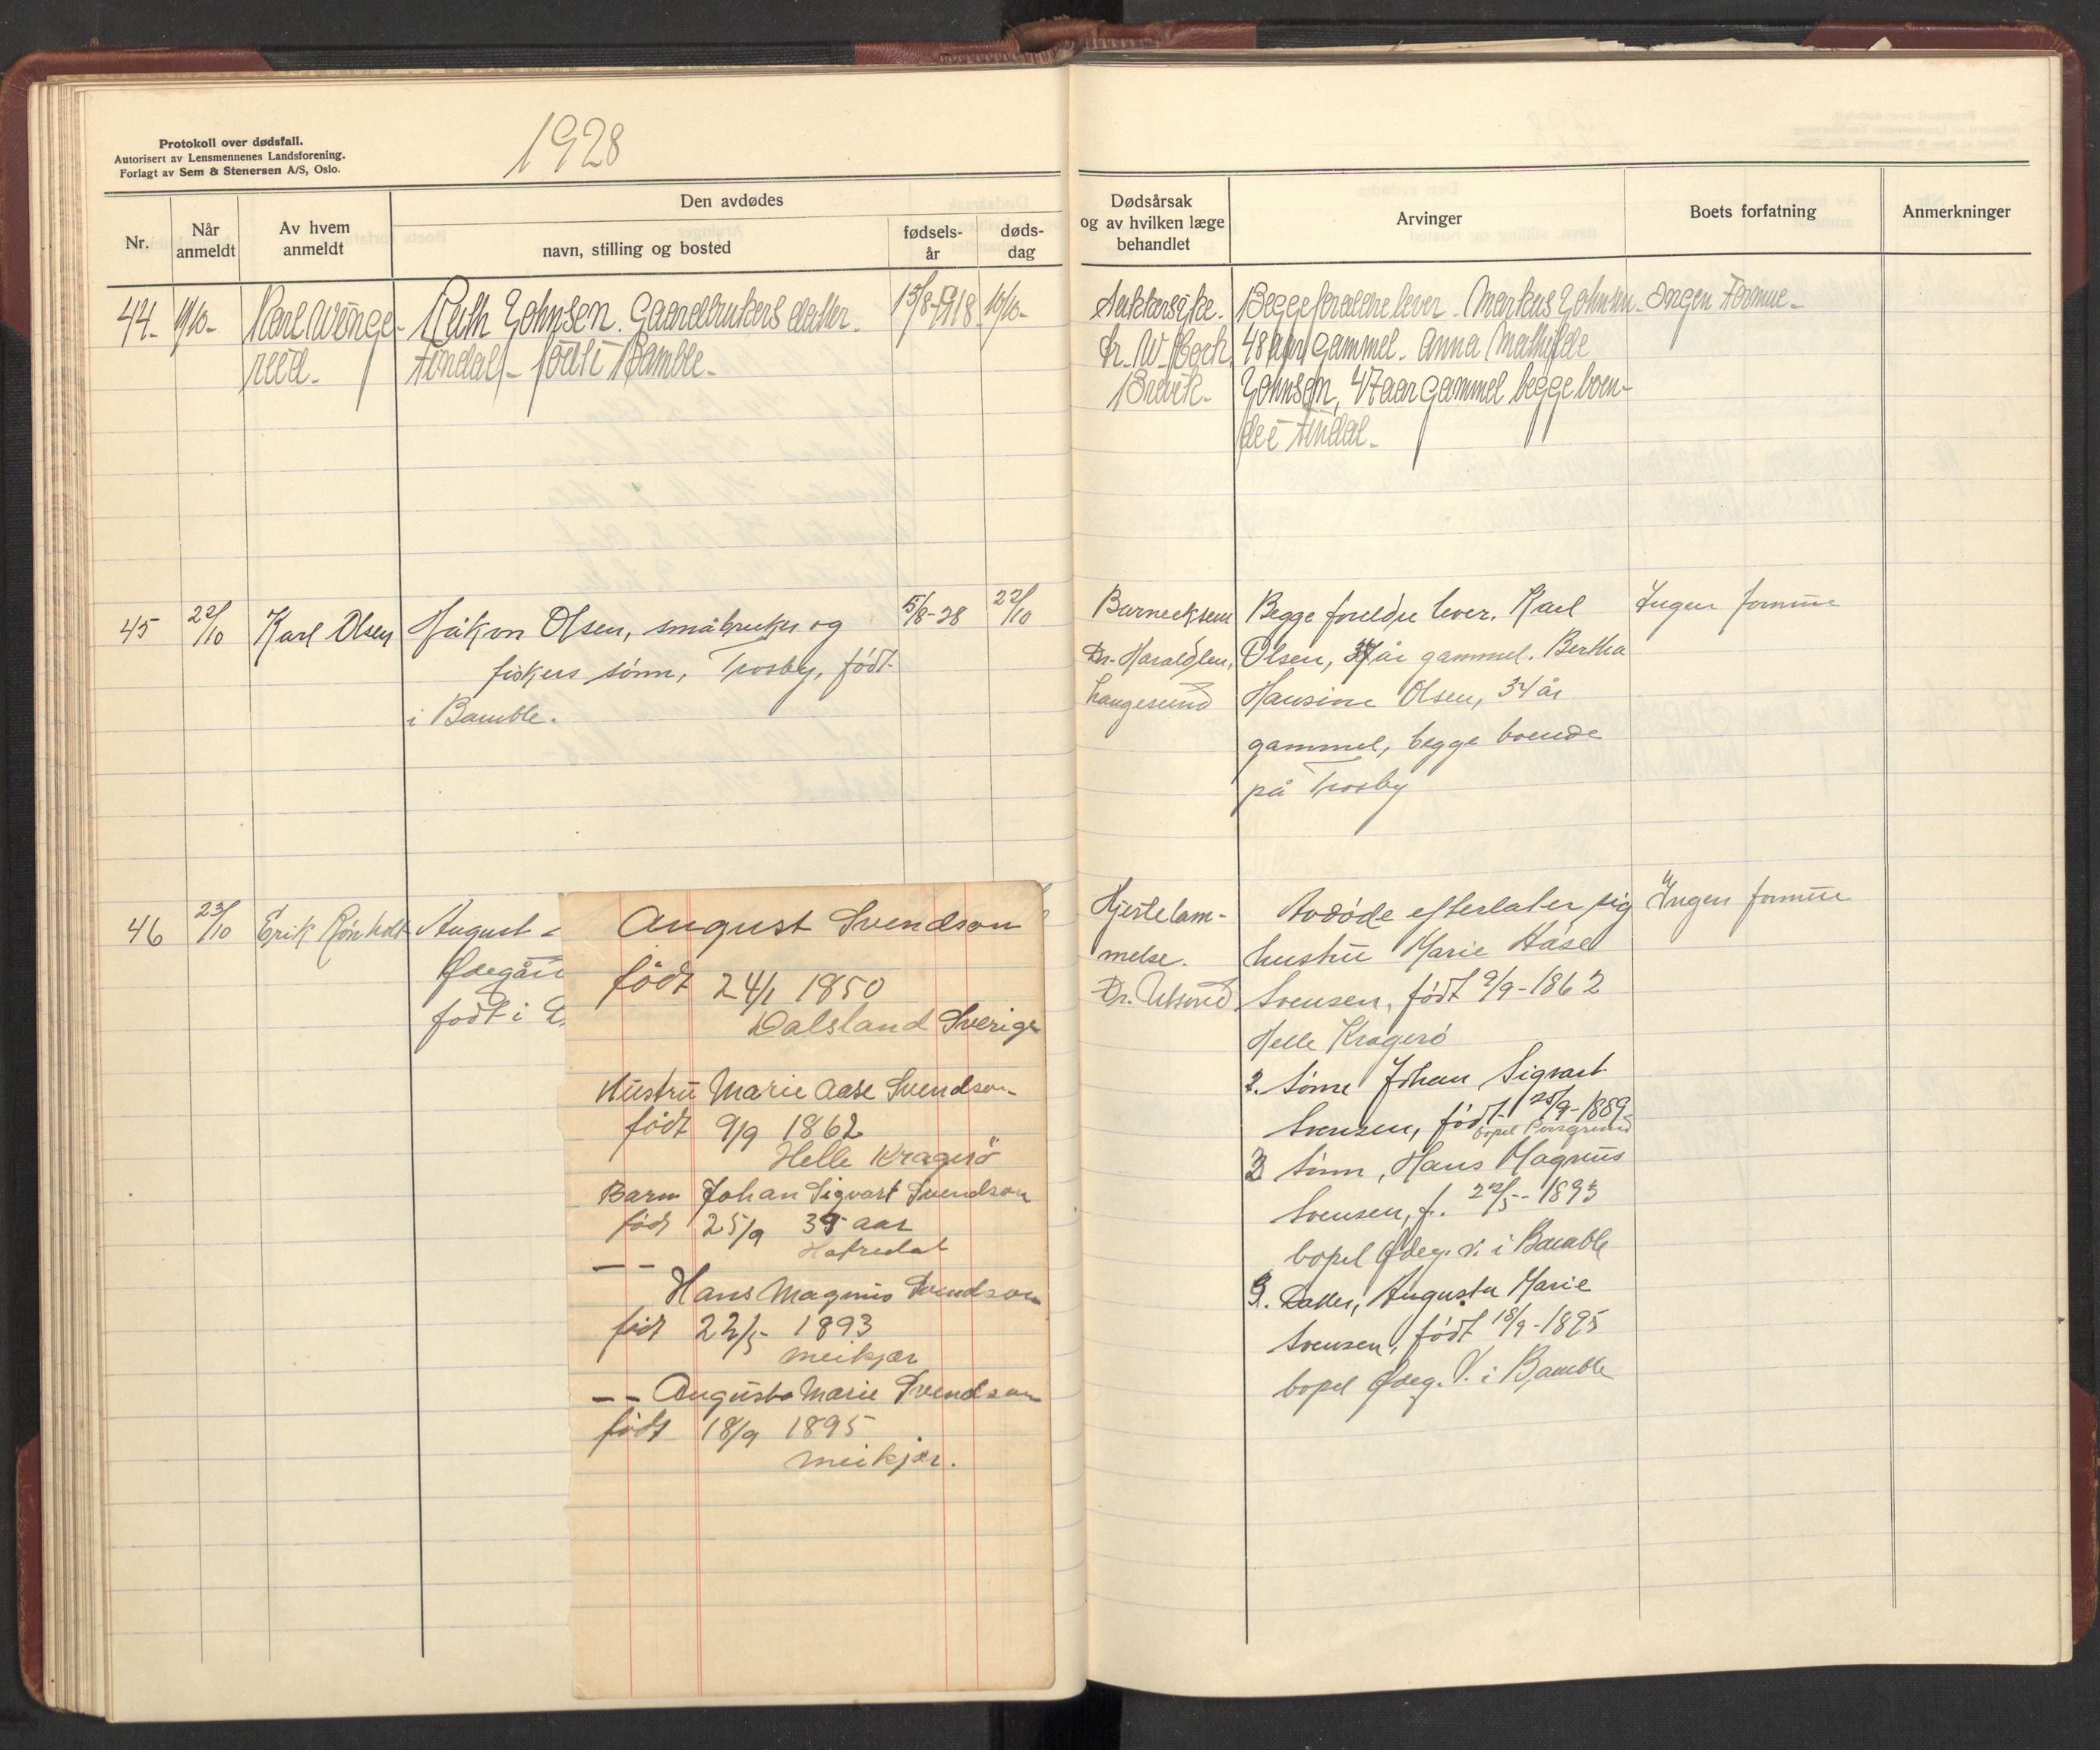 1928
Protokoll over dødsfall.
Autorisert av Lensmennenes Landsforening.
Forlagt av Sem & Stenersen A/S, Oslo.
Nr.
Når anmeldt
Av hvem anmeldt
Den avdødes
navn, stilling og bosted
fødsels-
år
døds-
dag
Dødsårsak
og av hvilken læge
behandlet
Arvinger
Boets forfatning
Anmerkninger
44-
/10-
Karl Winge-
reid-
Ruth Johnsen. Gaardbrukers datter.
Findal- født i Bamble-
15/8-1918
10/10-
Sukkersyke.
Dr. W. Hoch
Brevik-
Begge foraldre lever. Markus Johnsen-
48 aar gammel. Anna Mathilde
Johnsen, 47 aar gammel begge boen-
de i Findal-
Ingen Formue-
45
22/10
Karl Olsen
Håkon Olsen, småbruker og
fiskers sønn, Trosby, født
i Bamble.
5/8-28
22/10
Barneeksem
Dr. Haraldsen,
Langesund
Begge foreldre lever. Karl
Olsen, år gammel. Bertha
Hansine Olsen, 34 år
gammel, begge boende
på Trosby
Ingen formue
46
23/10
Erik Rønholt
August
Ødegård
født i
August Svendson
født 24/1 1850
Dalsland Sverige
Hustru Marie Aase Svendson
født 9/9 1862
Helle Kragerö
Barn Johan Sigvart Svendson
født 25/9 39 aar
-- Hans Magnus Svendson
født 22/5- 1893
meikjær
-- Augusta Marie Svendson
født 18/9 1895
meikjær.
Hjertelam-
melse.
Dr. Ulsund
Avdøde efterlater sig
hustru Marie Håse
Svensen, født 9/9-1862
Helle Kragerø
2. Sønn Johan Sigvart
Svensen, født 25/9-1889
bopel Porsgrund
3 Sønn, Hans Magnus
Svensen, f. 22/5-1893
bopel Ødeg. V. i Bamble
Datter, Augusta Marie
Svensen, født 18/9-1895
bopel Ødeg. V. i Bamble
Ingen formue